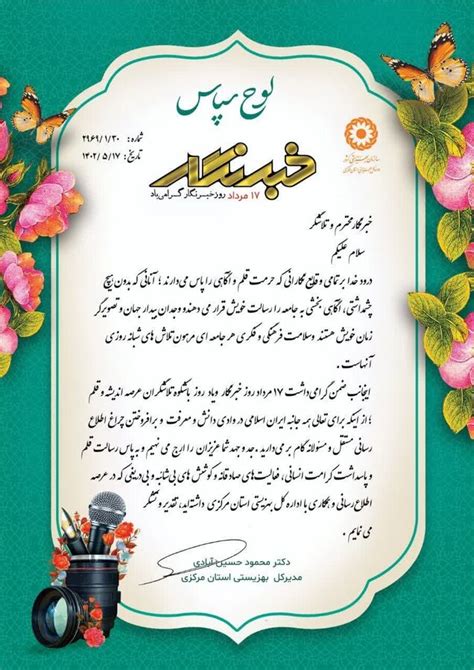 لوح سپاس
شماره: ۲۹۶۹/۱/۳۰
تاریخ: ۱۴۰۲/۵/۱۷
خبرنگار
۱۷ مرداد روز خبرنگار گرامی باد
خبرنگار محترم و تلاشگر
سلام علیکم
درود خدا بر تمامی وقایع نگارانی که حرمت قلم و آگاهی را پاس می دارند ؛ آنانی که بدون هیچ
چشمداشتی، آگاهی بخشی به جامعه را رسالت خویش قرار می دهند و وجدان بیدار جهان و تصویرگر
زمان خویش هستند و سلامت فرهنگی و فکری هر جامعه ای مرهون تلاش های شبانه روزی
آنهاست .
اینجانب ضمن گرامی داشت ۱۷ مرداد روز خبرنگار و یاد روز باشکوه تلاشگران عرصه اندیشه و قلم
؛ از اینکه برای تعالی همه جانبه ایران اسلامی در وادی دانش و معرفت و برافروختن چراغ اطلاع
رسانی مستقل و مسئولانه گام بر می دارید . جد و جهد شما عزیزان را ارج می نهیم و به پاس رسالت قلم
و پاسداشت کرامت انسانی ، فعالیت های صادقانه و کوشش های بی شائبه و بی دریغی که در عرصه
اطلاع رسانی و همکاری با اداره کل بهزیستی استان مرکزی داشته اید، تقدیر و تشکر
می نمایم .
دکتر محمود حسین آبادی
مدیرکل بهزیستی استان مرکزی